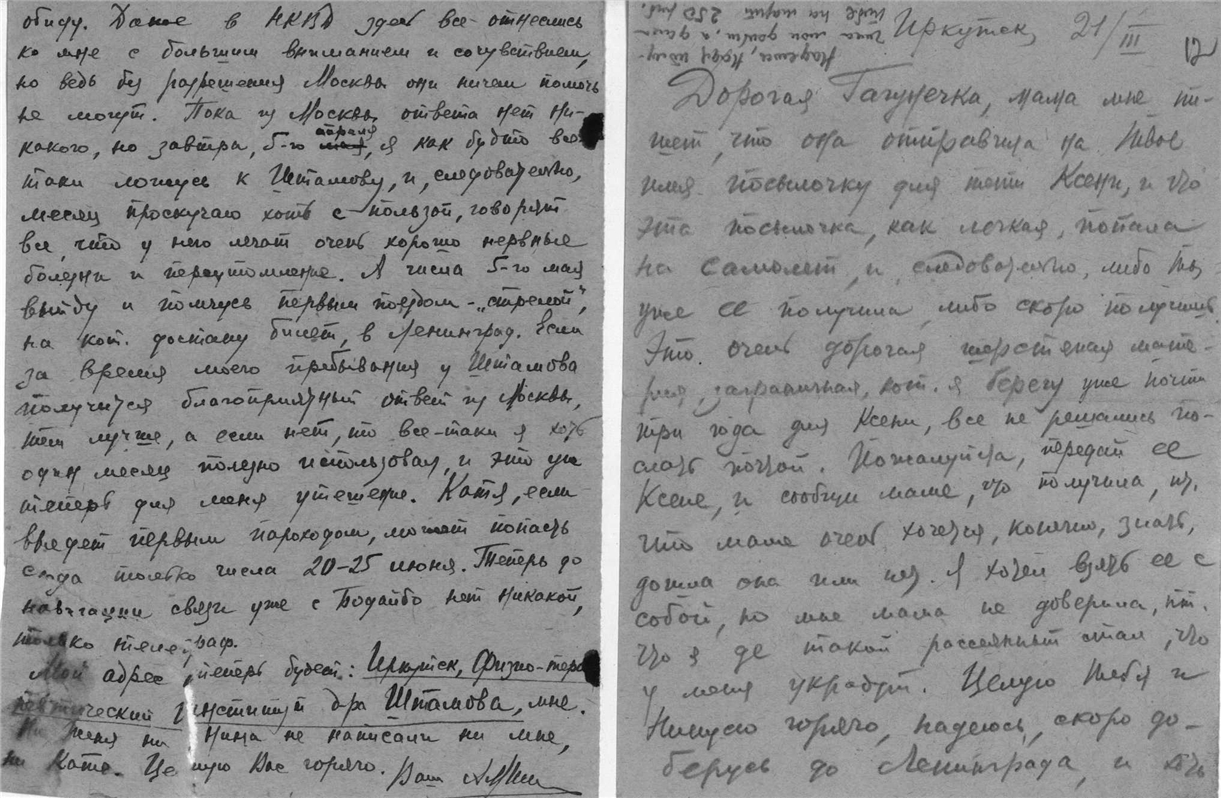 обиду. Даже в НКВД здесь все отнеслись
ко мне с большим вниманием и сочувствием,
но ведь без разрешения Москвы они ничем помочь
не могут. Пока из Москвы ответа нет ни-
какого, но завтра, 5-го апреля, я как будто все-
таки ложусь к Штамову, и, следовательно,
месяц проскучаю хоть с пользой, говорят
все, что у него лечат очень хорошо нервные
болезни и переутомление. А числа 5-го мая
выйду и помчусь первым поездом - „стрелой",
на кот. достану билет, в Ленинград. Если
за время моего пребывания у Штамова
получится благоприятный ответ из Москвы,
тем лучше, а если нет, то все-таки я хоть
один месяц полезно использовал, и это уж
теперь для меня утешение. Катя, если
выедет первым пароходом, может попасть
сюда только числа 20-25 июня. Теперь до
навигации связи уже с Бодайбо нет никакой,
только телеграф.
Мой адрес теперь будет: Иркутск, Физио-тера-
певтический институт д-ра Штамова, мне.
Ни Женя ни Нина не написали ни мне,
ни Кате. Целую Вас горячо. Ваш
Иркутск, 21/III
12
Дорогая Гагунечка, мама мне пи-
шет, что она отправила на Твое
имя посылочку для тети Ксени, и что
эта посылочка, как легкая, попала
на самолет, и следовательно, либо Ты
уже ее получила, либо скоро получишь.
Это очень дорогая шерстяная мате-
рия, заграничная, кот. я берегу уже почти
три года для Ксени, все не решались по-
слать почтой. Пожалуйста, передай ее
Ксене, и сообщи маме, что получила, п.
что маме очень хочется, конечно, знать,
дошла она или нет. Я хотел взять ее с
собой, но мне мама не доверила, п.
что я де такой рассеянный стал, что
у меня украдут. Целую Тебя и
Нинусю горячо, надеюсь, скоро до-
берусь до Ленинграда, и хоть